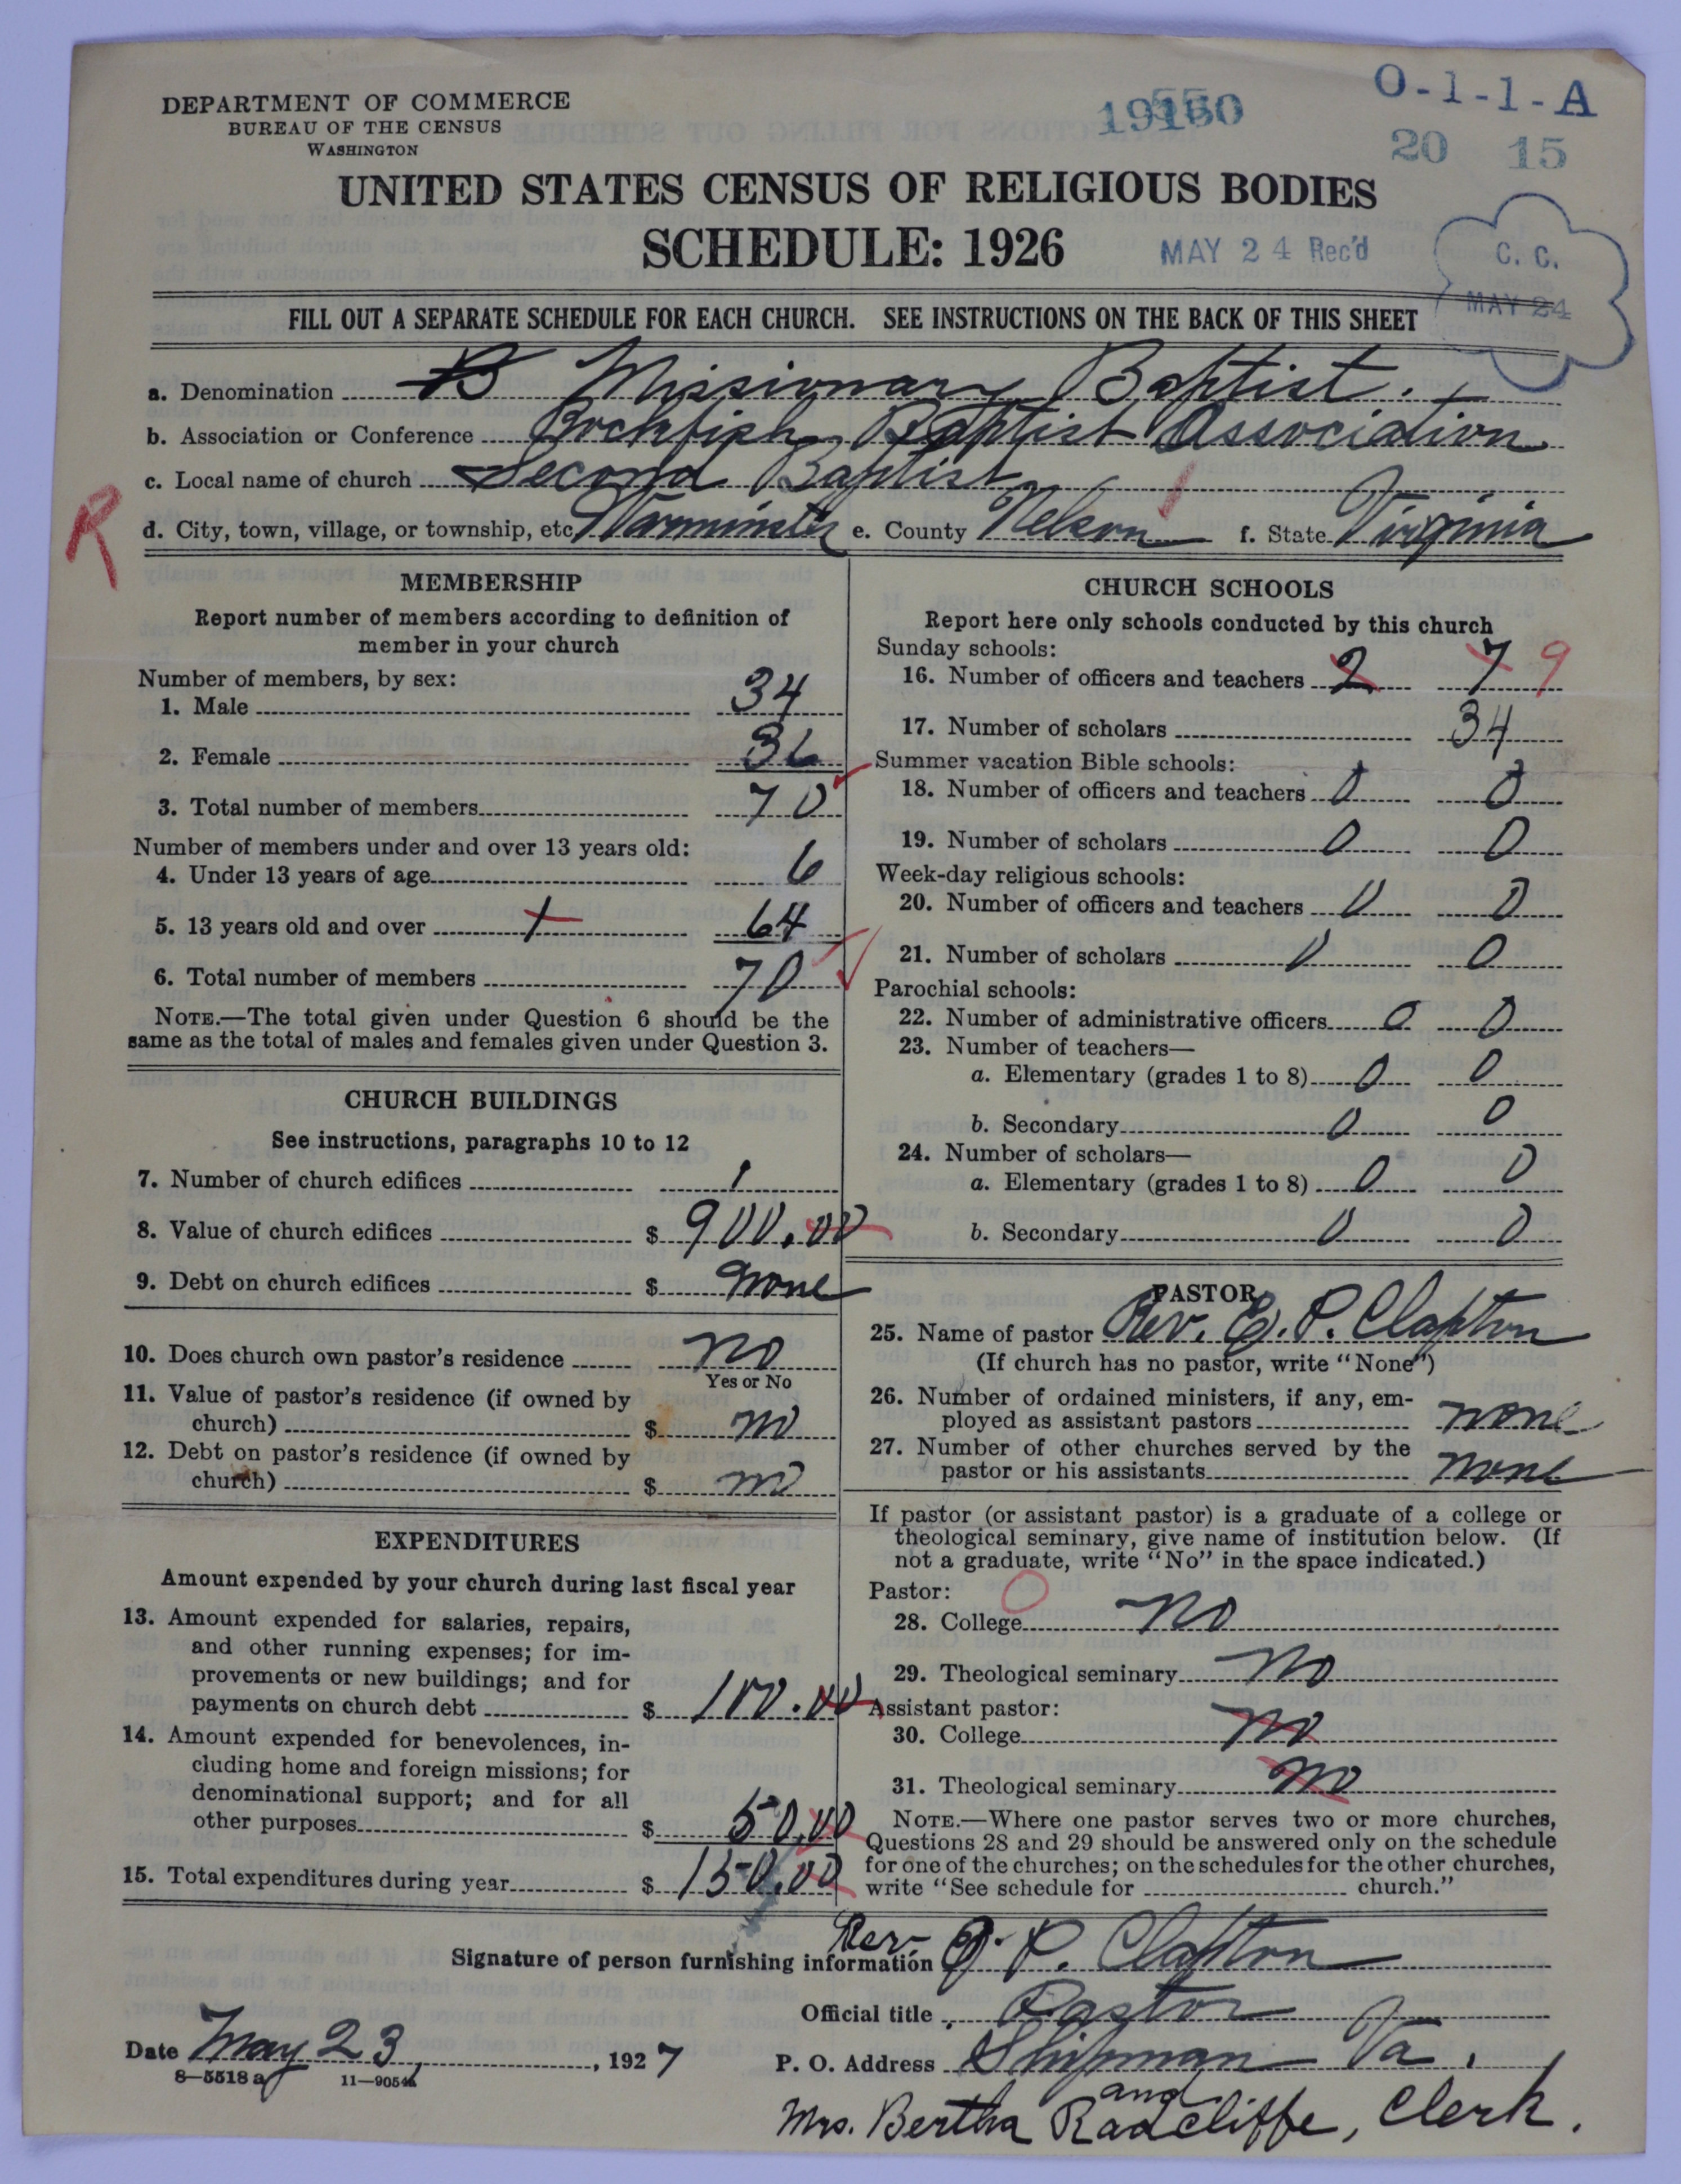 DEPARTMENT OF COMMERCE
BUREAU OF THE CENSUS
WASHINGTON
O-1-1-A
20 15
UNITED STATES CENSUS OF RELIGIOUS BODIES
SCHEDULE: 1926
MAY 24 Rec'd
C. C.
MAY 24
FILL OUT A SEPARATE SCHEDULE FOR EACH CHURCH. SEE INSTRUCTIONS ON THE BACK OF THIS SHEET
a. Denomination B Missionary Baptist.
b. Association or Conference Rockfish Baptist Association
c. Local name of church Second Baptist
R
d. City, town, village, or township, etc Warminster e. County Nelson f. State Virginia
MEMBERSHIP
Report number of members according to definition of
member in your church
Number of members, by sex:
1. Male 34
2. Female 36
3. Total number of members 70
Number of members under and over 13 years old:
4. Under 13 years of age 6
5. 13 years old and over 64
6. Total number of members 70
NOTE.—The total given under Question 6 should be the
same as the total of males and females given under Question 3.
CHURCH BUILDINGS
See instructions, paragraphs 10 to 12
7. Number of church edifices 1
8. Value of church edifices $ 900.00
9. Debt on church edifices $ none
10. Does church own pastor's residence no
Yes or No
11. Value of pastor's residence (if owned by
church) $ no
12. Debt on pastor's residence (if owned by
church) $ no
EXPENDITURES
Amount expended by your church during last fiscal year
13. Amount expended for salaries, repairs,
and other running expenses; for im-
provements or new buildings; and for
payments on church debt $ 100.00
14. Amount expended for benevolences, in-
cluding home and foreign missions; for
denominational support; and for all
other purposes $ 50.00
15. Total expenditures during year $ 150.00
CHURCH SCHOOLS
Report here only schools conducted by this church
Sunday schools:
16. Number of officers and teachers 2 7 9
17. Number of scholars 34
Summer vacation Bible schools:
18. Number of officers and teachers 0 0
19. Number of scholars 0 0
Week-day religious schools:
20. Number of officers and teachers 0 0
21. Number of scholars 0 0
Parochial schools:
22. Number of administrative officers 0 0
23. Number of teachers—
a. Elementary (grades 1 to 8) 0 0
b. Secondary 0 0
24. Number of scholars—
a. Elementary (grades 1 to 8) 0 0
b. Secondary 0 0
PASTOR
25. Name of pastor Rev. E. P. Clapton
(If church has no pastor, write "None")
26. Number of ordained ministers, if any, em-
ployed as assistant pastors none
27. Number of other churches served by the
pastor or his assistants none
If pastor (or assistant pastor) is a graduate of a college or
theological seminary, give name of institution below. (If
not a graduate, write "No" in the space indicated.)
Pastor: O
28. College no
29. Theological seminary no
Assistant pastor:
30. College no
31. Theological seminary no
NOTE.—Where one pastor serves two or more churches,
Questions 28 and 29 should be answered only on the schedule
for one of the churches; on the schedules for the other churches,
write "See schedule for church."
Signature of person furnishing information Rev. P. Clapton
Official title Pastor
Date May 23, 1927
P. O. Address Shipman Va.
8—5518 a
and
Mrs. Bertha Radcliffe, Clerk.